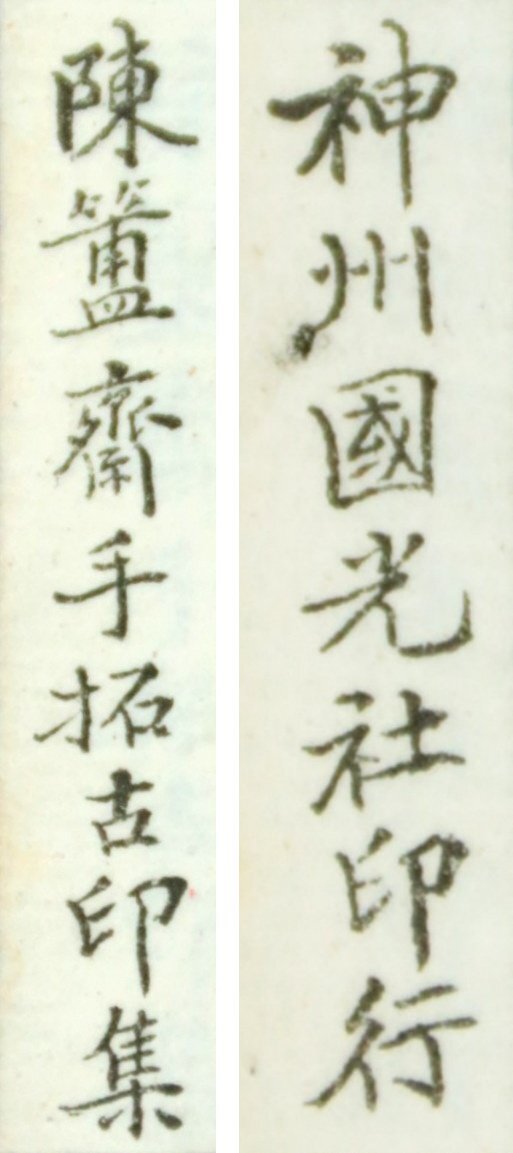 陳簠齋手拓古印集
神州國光社印行